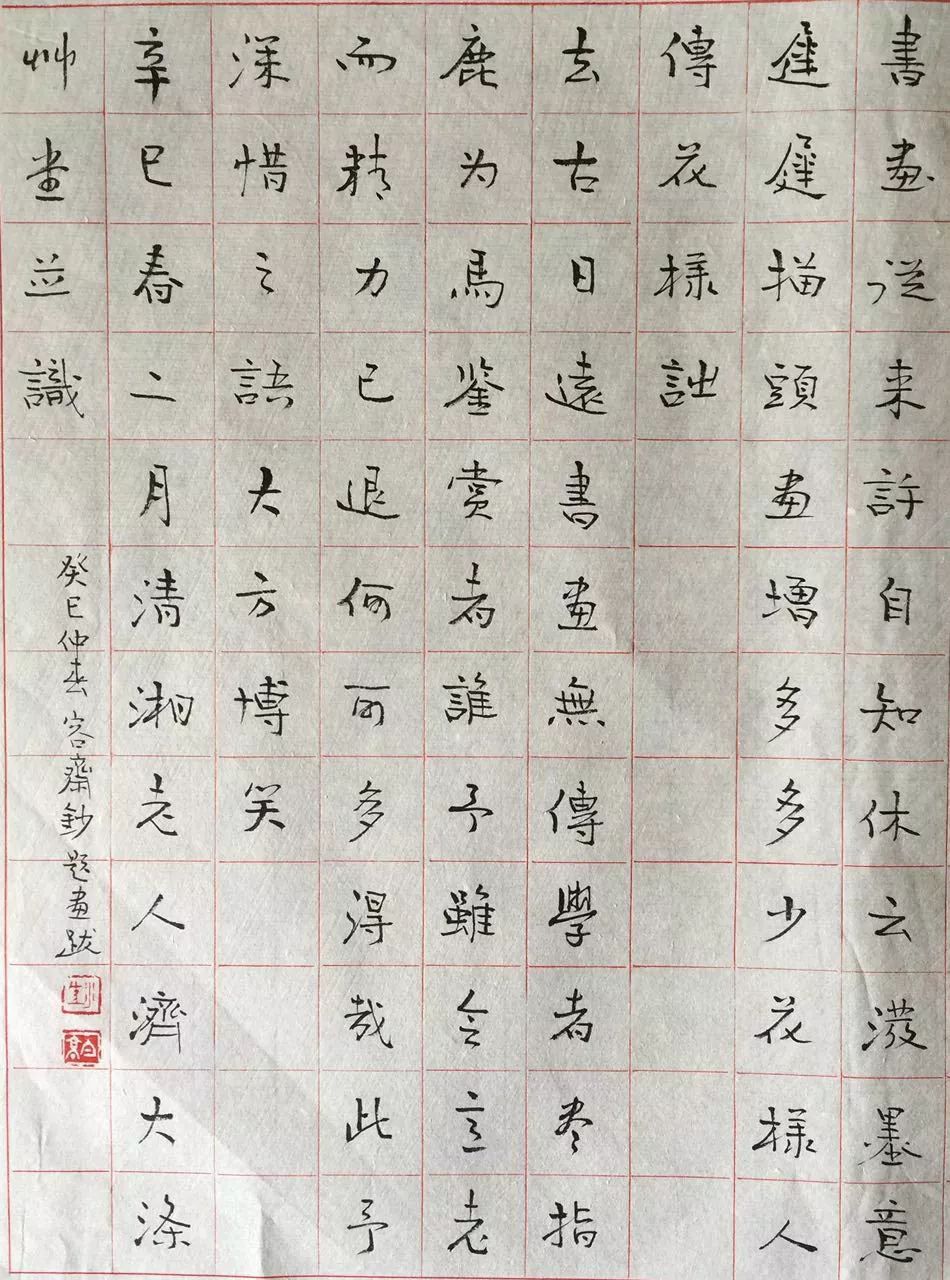 書畫從来許自知休云潑墨意
遲遲描頭畫增多多少花樣人
傳花樣詘
去古日遠書畫無傳學者尽指
鹿为馬鑒賞者誰予雖会言老
而精力已退何可多得哉此予
深惜之語大方博笑
辛巳春二月清湘老人濟大滌
艸堂並識
癸巳仲春容齋鈔題畫跋